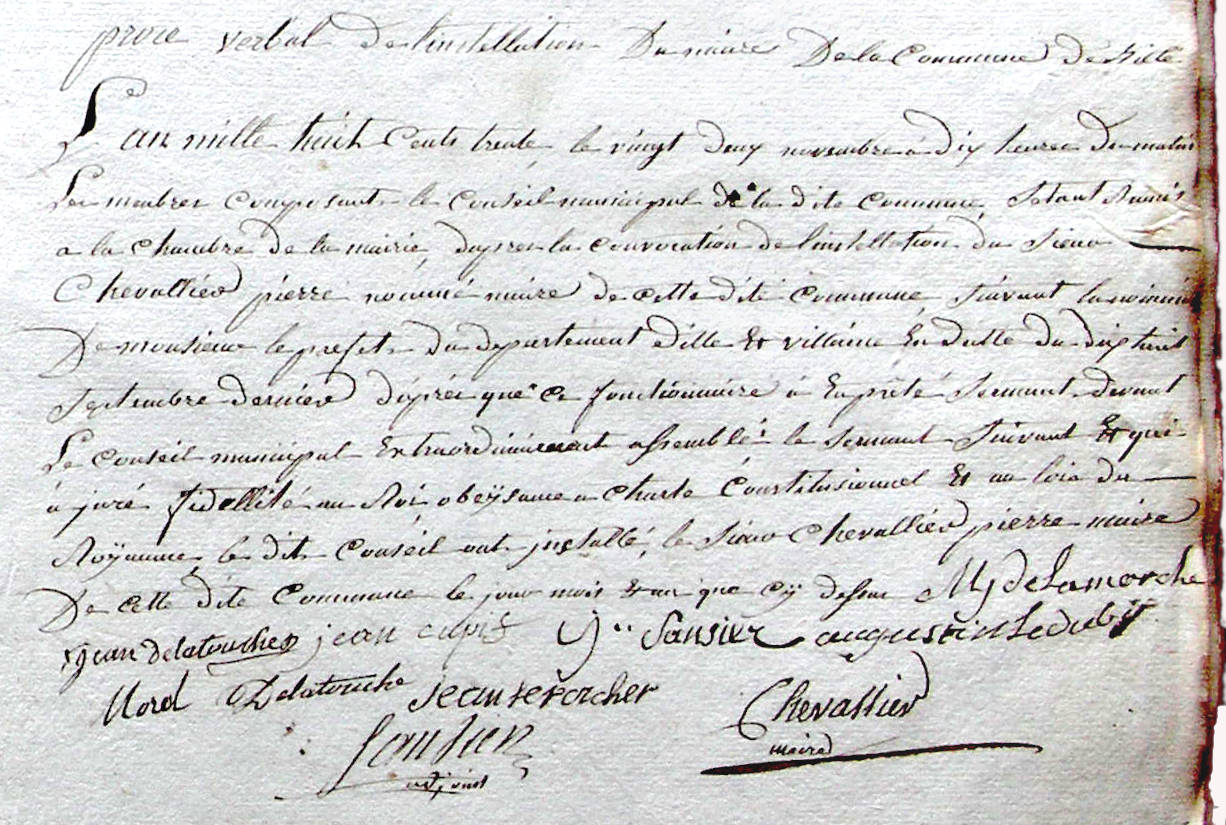 proce verbal de linstellation du maire De la Commune de
L'an mille huit Cents trente, le vingt deux novembre a dix heures du matin
Les membres composant le conseil municipal de la dite commune, Setant Reunis
a la chambre de la mairie, dapres la convocation de linstellation du Sieur
Chevallier pierre nommé maire de cette dite commune Suivant la
De monsieur le prefet du departement dille Et villaine En datte du dix huit
Septembre dernier daprés que ce fonctionnaire á En prété Serment devant
Le conseil municipal Extraordinairement assemblé le Serment Suivant Et qui
á juré fidellité au Roi obeÿsance a Charte Constitusionnel Et au lois du
Roÿaume, le dit Conseil ont jnstallé, le Sieur Chevallier pierre maire
De cette dite Commune le jour mois et an que cÿ dessus Mj delamorche
jean delatouches jean Sansier augustin Ledubs
Morel Delatouche jean leporcher
Chevallier
Sansier maire
adjoint